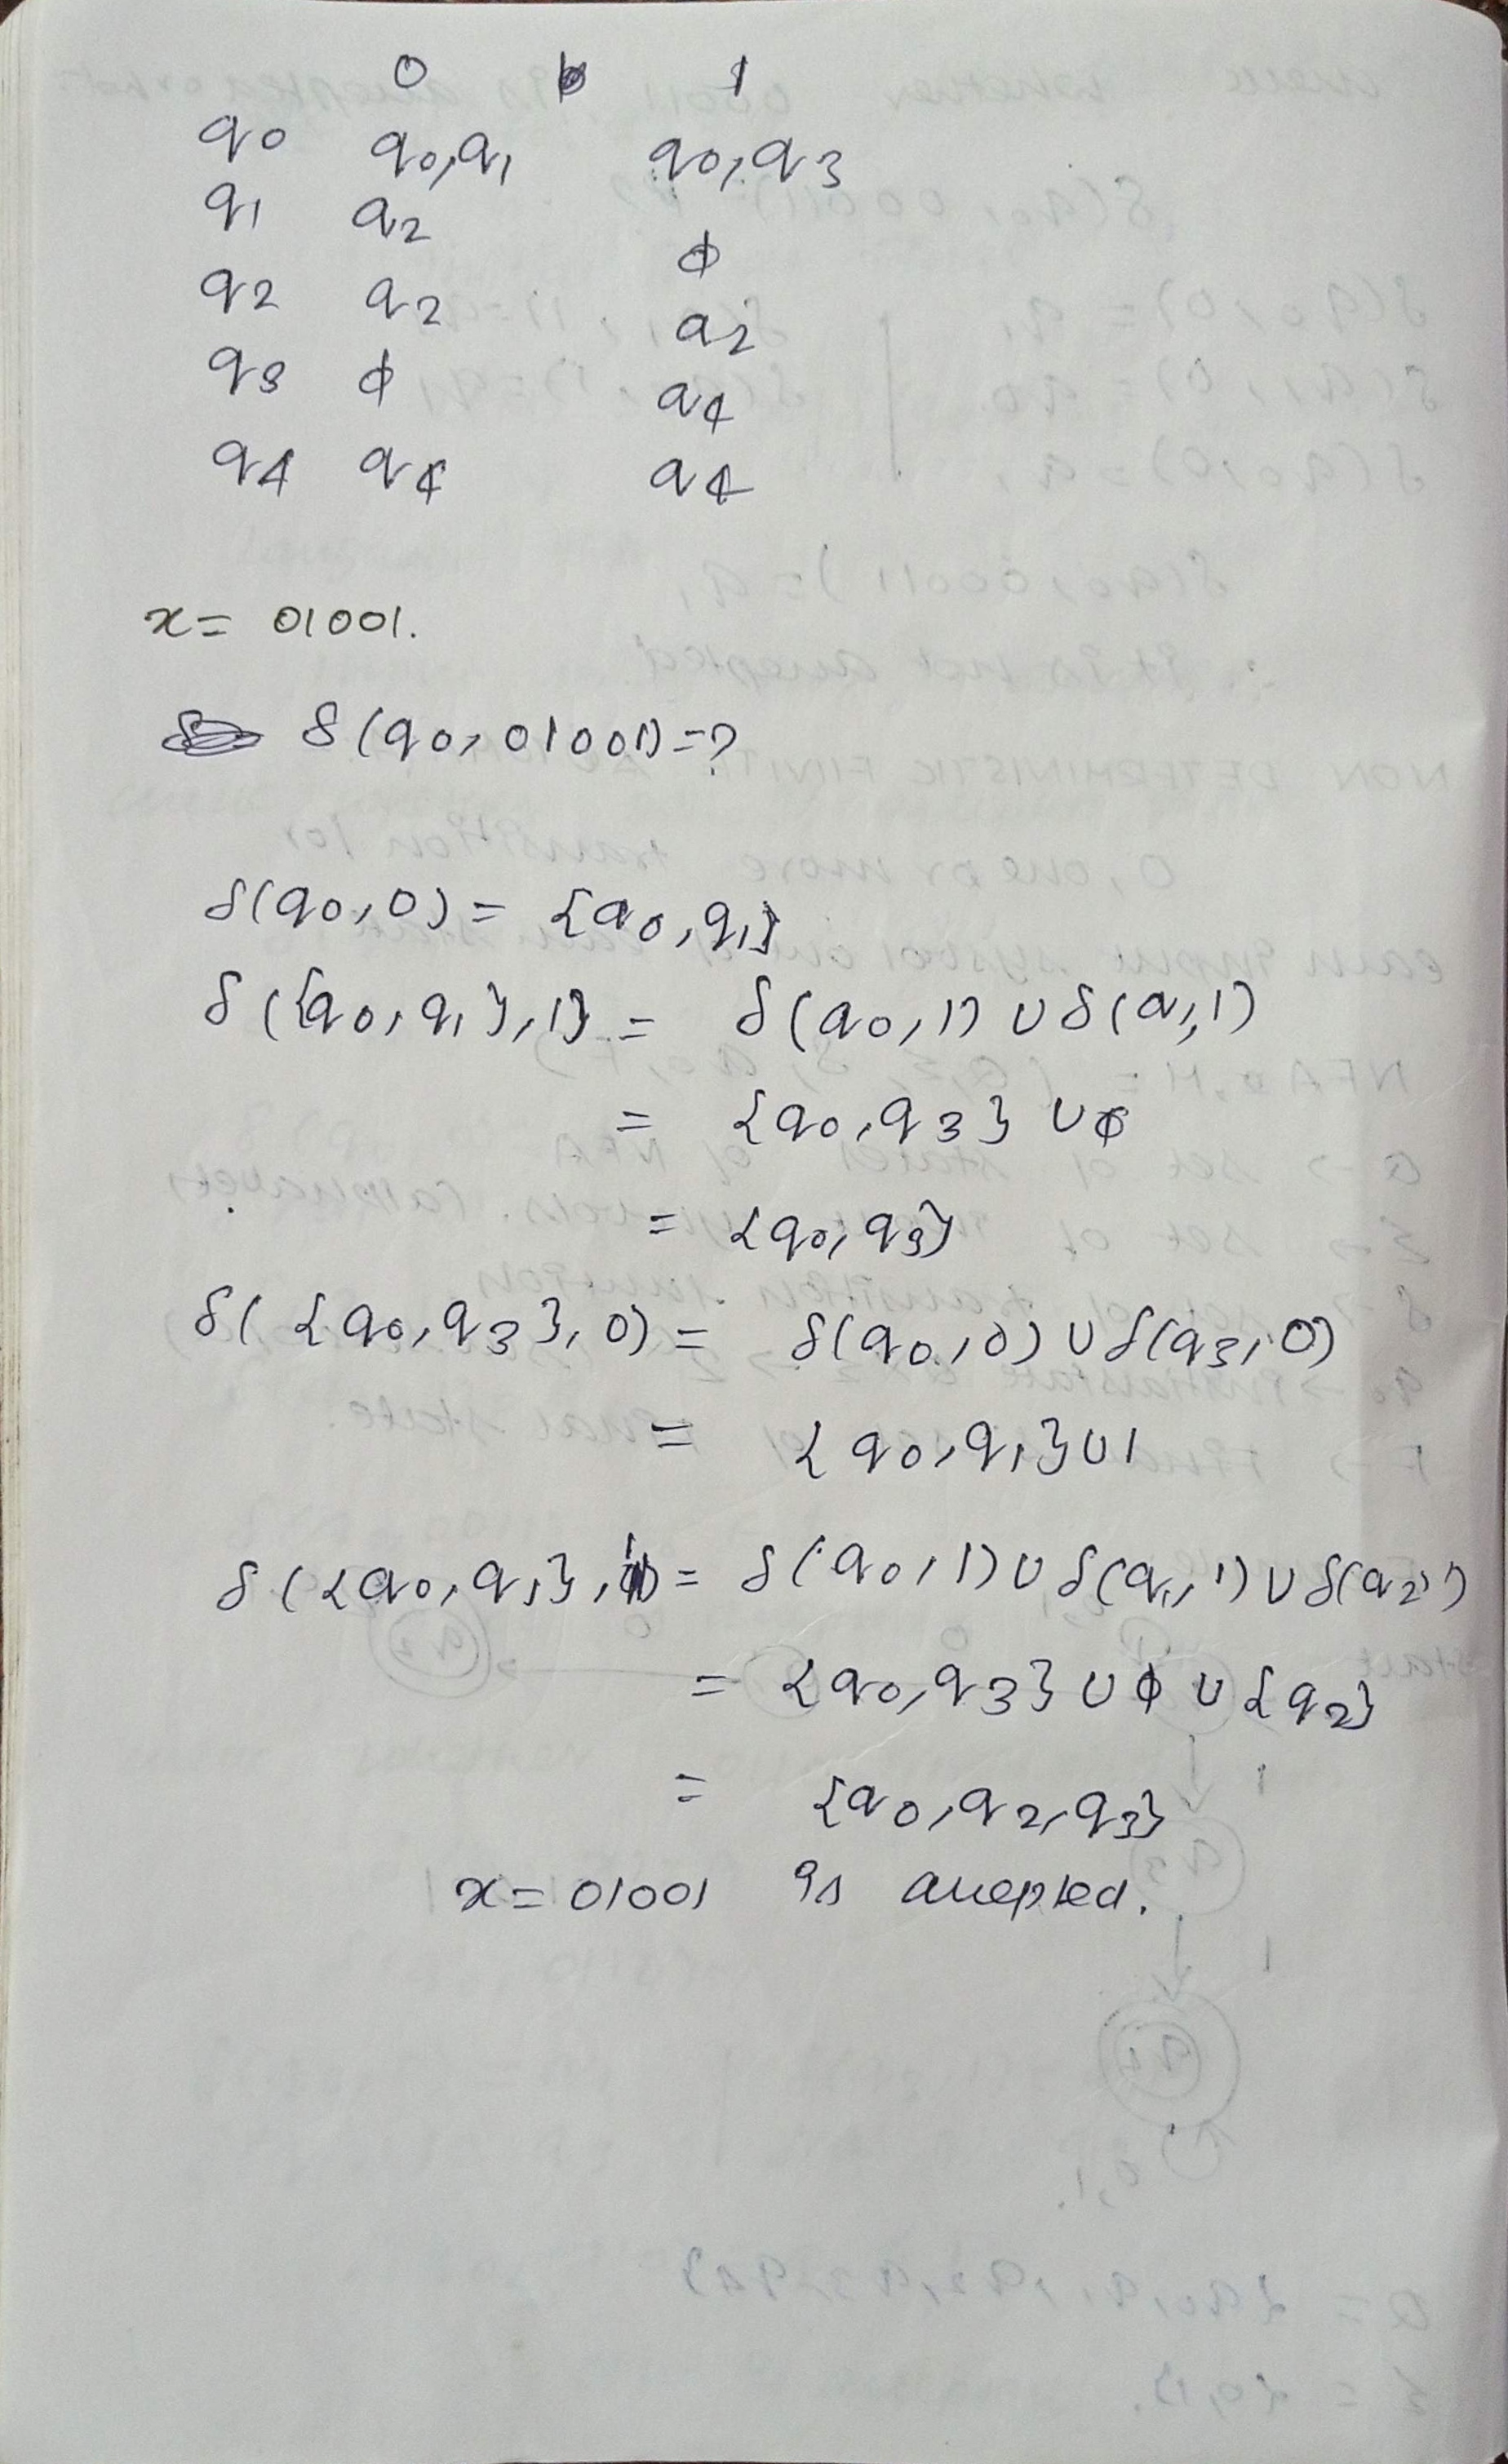 0 1
q0 q0,q1 q0,q3
q1 q2 ϕ
q2 q2 q2
q3 ϕ q4
q4 q4 q4
x = 01001.
δ(q0, 01001) = ?
δ(q0,0) = {q0,q1}
δ({q0,q1},1} = δ(q0,1) ∪ δ(q1,1)
= {q0,q3} ∪ ϕ
= {q0,q3}
δ({q0,q3},0) = δ(q0,0) ∪ δ(q3,0)
= {q0,q1} ∪ 1
δ({q0,q1},1) = δ(q0,1) ∪ δ(q1,1) ∪ δ(q2,1)
= {q0,q3} ∪ ϕ ∪ {q2}
= {q0,q2,q3}
x = 01001 is accepted.